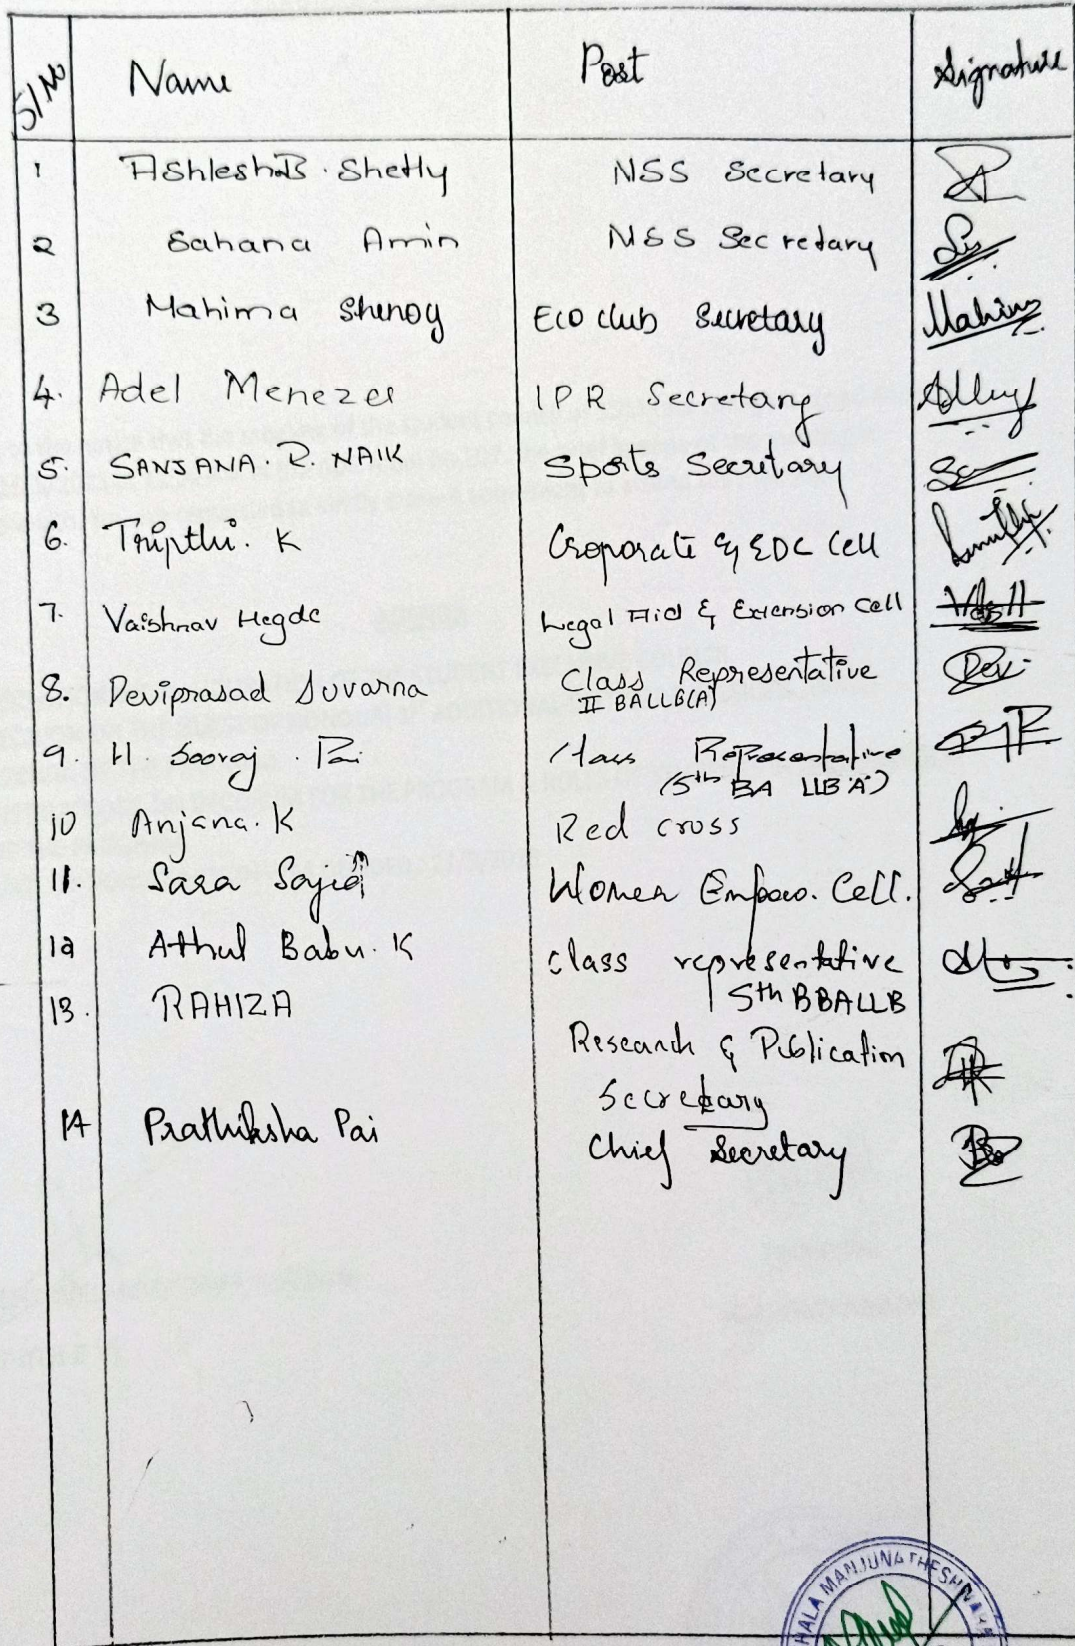 Sl No Name Post Signature
1 Ashlesh B. Shetty NSS Secretary
2 Sahana Amin NSS Secretary
3 Mahima Shenoy Eco club Secretary Mahima
4. Adel Menezes IPR Secretary
5. SANJANA. R. NAIK Sports Secretary
6. Tripthi. K Croporate & EDC Cell
7. Vaishnav Hegde Legal Aid & Extension Cell
8. Deviprasad Suvarna Class Representative Dev
II BALLB(A)
9. H. Sooraj. Pai Class Representative
(5th BA LLB 'A')
10 Anjana. K Red cross
11. Sara Sajid Women Empow. Cell.
12 Athul Babu. K class representative
5th BBALLB
13. RAHIZA
Research & Publication
Secretary
14 Prathiksha Pai Chief Secretary
HALA MANJUNATHESHWARA